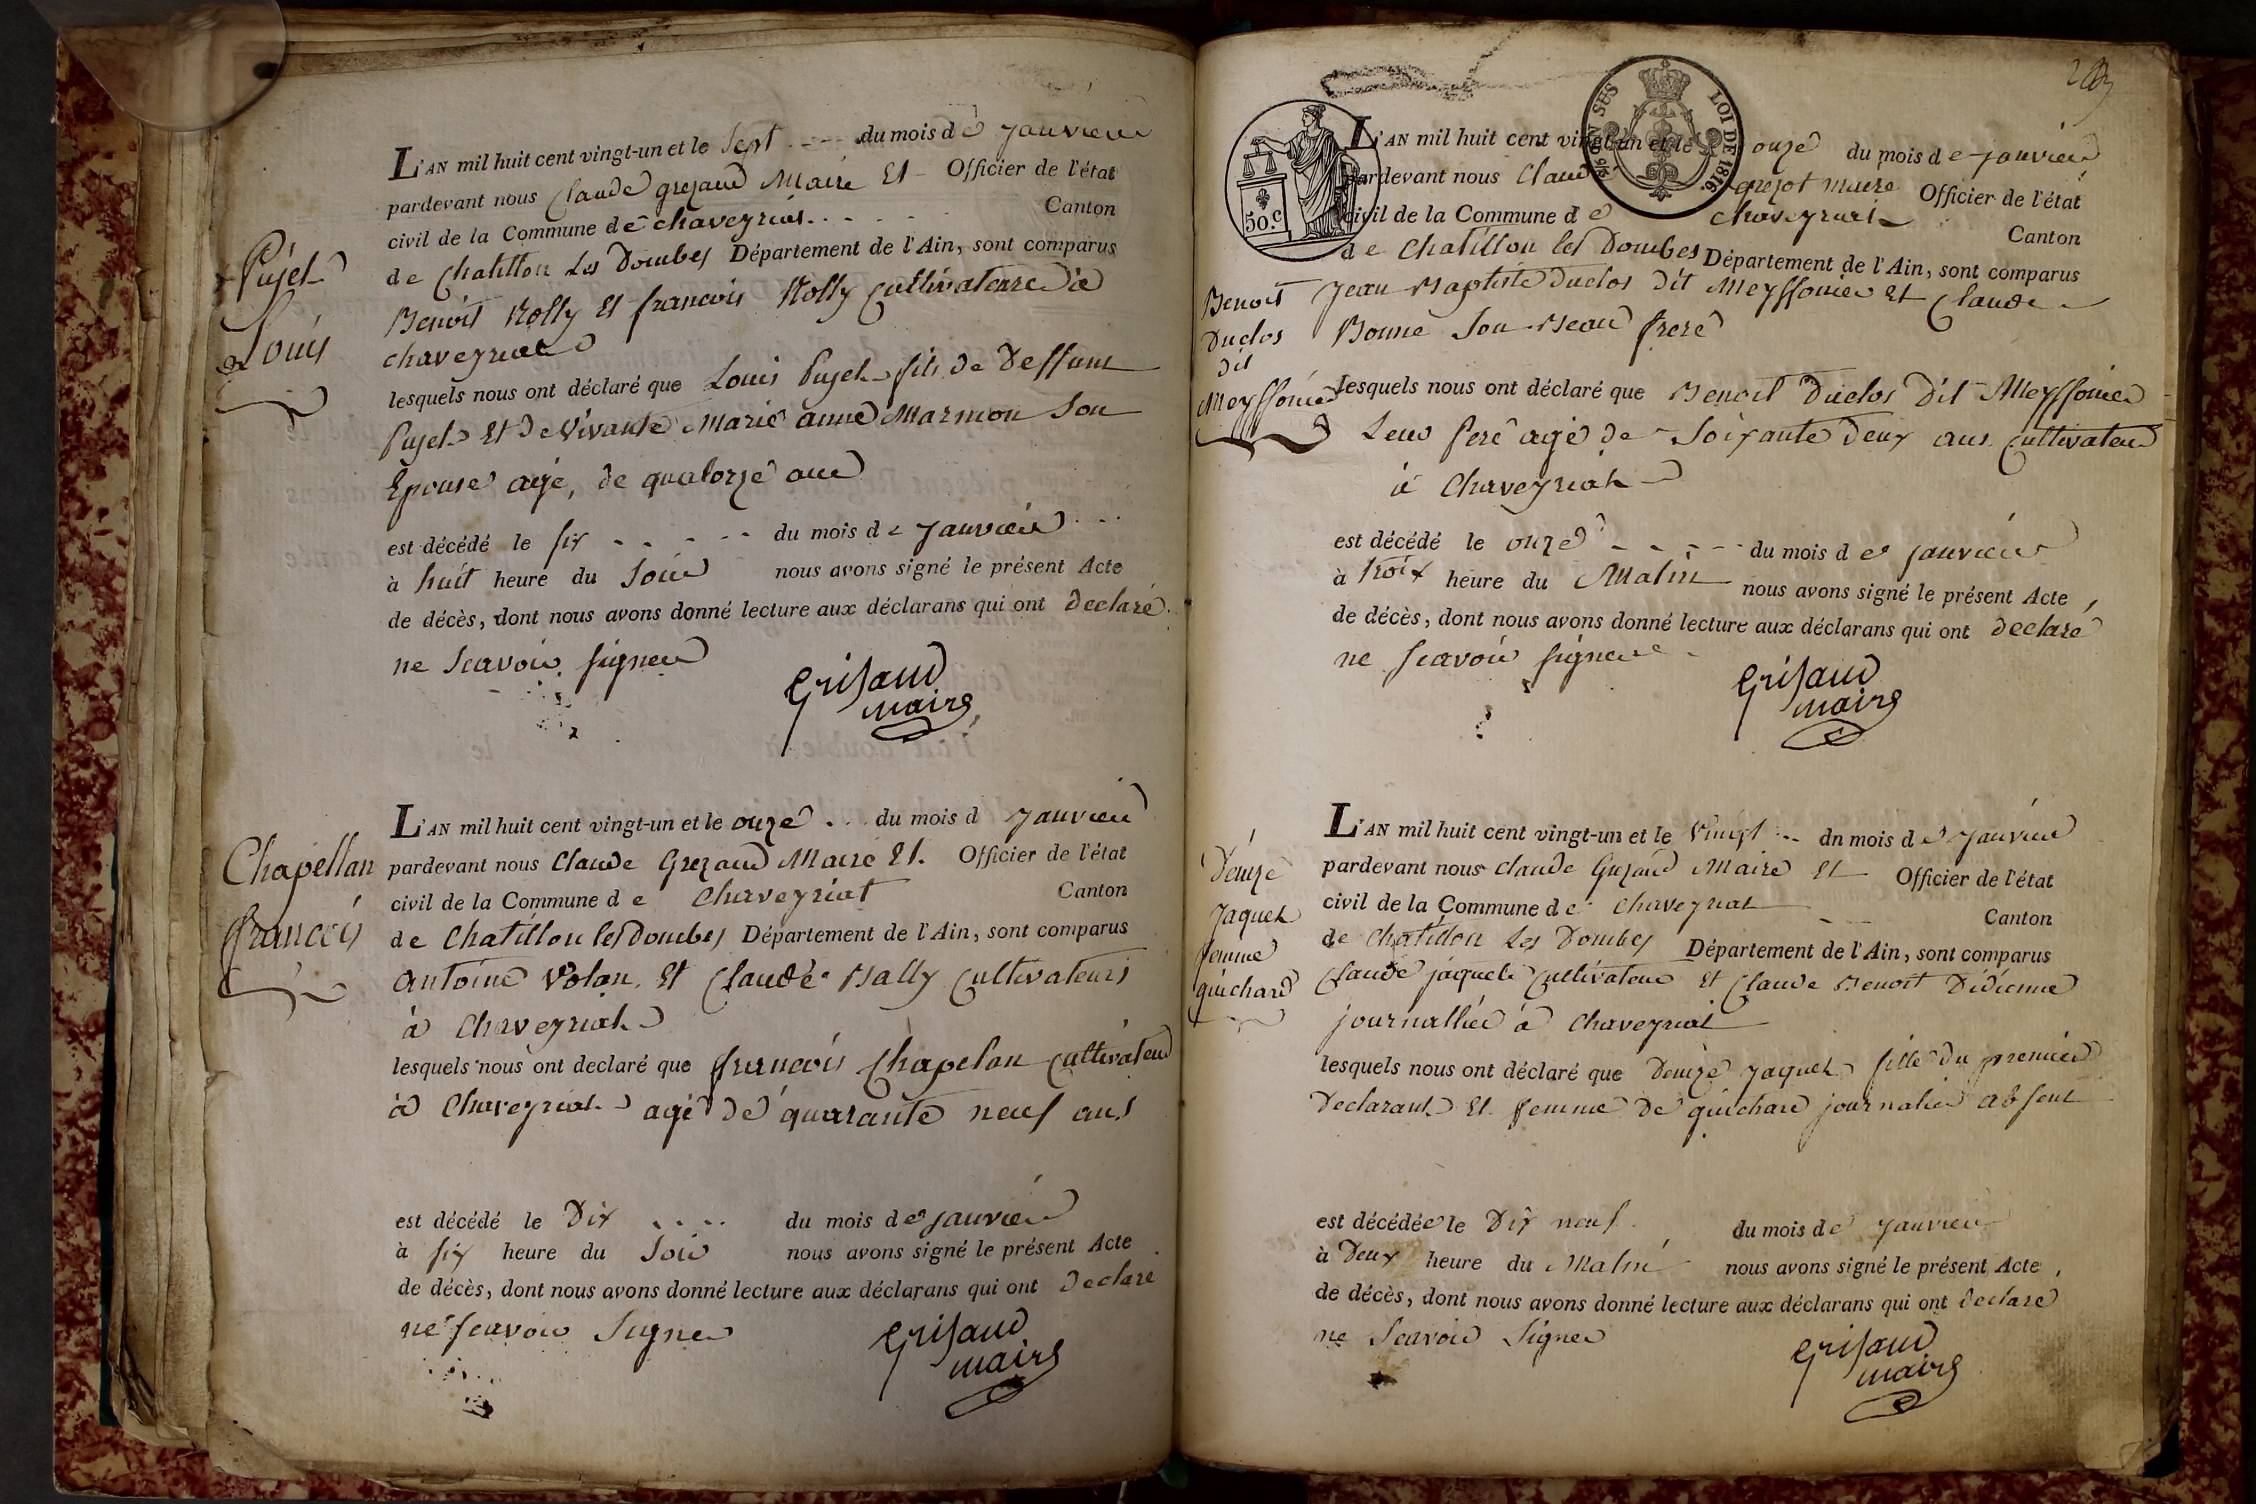 Pujet
Louis
L'AN mil huit cent vingt-un et le Sept du mois de janvier
pardevant nous Claude grezaud Maire Et Officier de l'état
civil de la Commune de chaveyriat Canton
de Chatillon Les Dombes Département de l'Ain, sont comparus
Benoit Rolly Et francois Rolly Cultivateurs à
chaveyriat
lesquels nous ont déclaré que Louis Pujet fils de Deffunt
Pujet Et de Vivante Marie anne Marmon Son
Epouse agé, de quatorze ans
est décédé le six du mois de janvier
à huit heure du Soir nous avons signé le présent Acte
de décès, dont nous avons donné lecture aux déclarans qui ont declaré
ne Scavoir signer
Grisaud
maire
Chapellan
francois
L'AN mil huit cent vingt-un et le onze du mois d janvier
pardevant nous Claude Grezaud Maire Et Officier de l'état
civil de la Commune de Chaveyriat Canton
de Chatillon les dombes Département de l'Ain, sont comparus
antoine Volan Et Claude Bally Cultivateurs
à Chaveyriat
lesquels nous ont declaré que francois Chapelan Cultivateur
à Chaveyriat agé de quarante neuf ans
est décédé le Dix du mois de janvier
à six heure du Soir nous avons signé le présent Acte
de décès, dont nous avons donné lecture aux déclarans qui ont declaré
ne scavoir Signer
Grisaud
maire
SUS
LOI DE 1816.
50.c
Benoit
Duclos
dit
Meyssonier
L'AN mil huit cent vingt-un et le onze du mois de janvier
pardevant nous Claude maire Officier de l'état
civil de la Commune de Chaveyriat Canton
de Chatillon les Dombes Département de l'Ain, sont comparus
Jean Baptiste Duclos dit Meyssonier Et Claude
Bonne Son Beau frere
lesquels nous ont déclaré que Benoit Duclos Dit Meyssonier
Leur Pere agé de Soixante deux ans Cultivateur
à Chaveyriat
est décédé le onze du mois de janvier
à trois heure du Matin nous avons signé le présent Acte
de décès, dont nous avons donné lecture aux déclarans qui ont declaré
ne scavoir signer
Grisaud
maire
Denize
Jaquet
femme
guichard
L'AN mil huit cent vingt-un et le Vingt dn mois de janvier
pardevant nous Claude Grezaud Maire Et Officier de l'état
civil de la Commune de Chaveyriat Canton
de Chatillon Les Dombes Département de l'Ain, sont comparus
Claude jaquet Cultivateur Et Claude Benoit Didienne
journallier à Chaveyriat
lesquels nous ont déclaré que Denize Jaquet fille du premier
Declarant Et femme de guichard journalier absent
est décédée le Dix neuf du mois de janvier
à Deux heure du Matin nous avons signé le présent Acte
de décès, dont nous avons donné lecture aux déclarans qui ont declaré
ne Scavoir Signer
Grisaud
maire